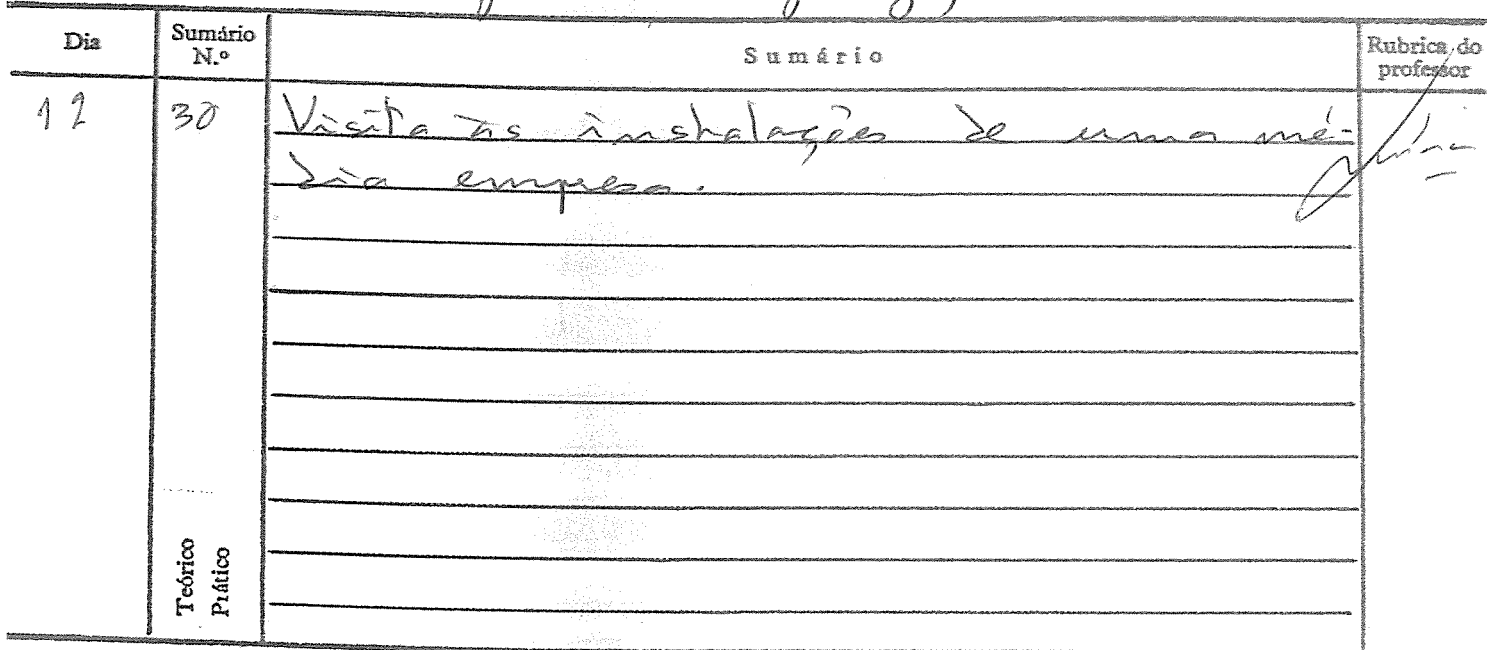 Dia
Sumário
N.º
Sumário
Rubrica do
professor
12
30
Visita às instalações de uma mé-
dia empresa.
Teórico
Prático